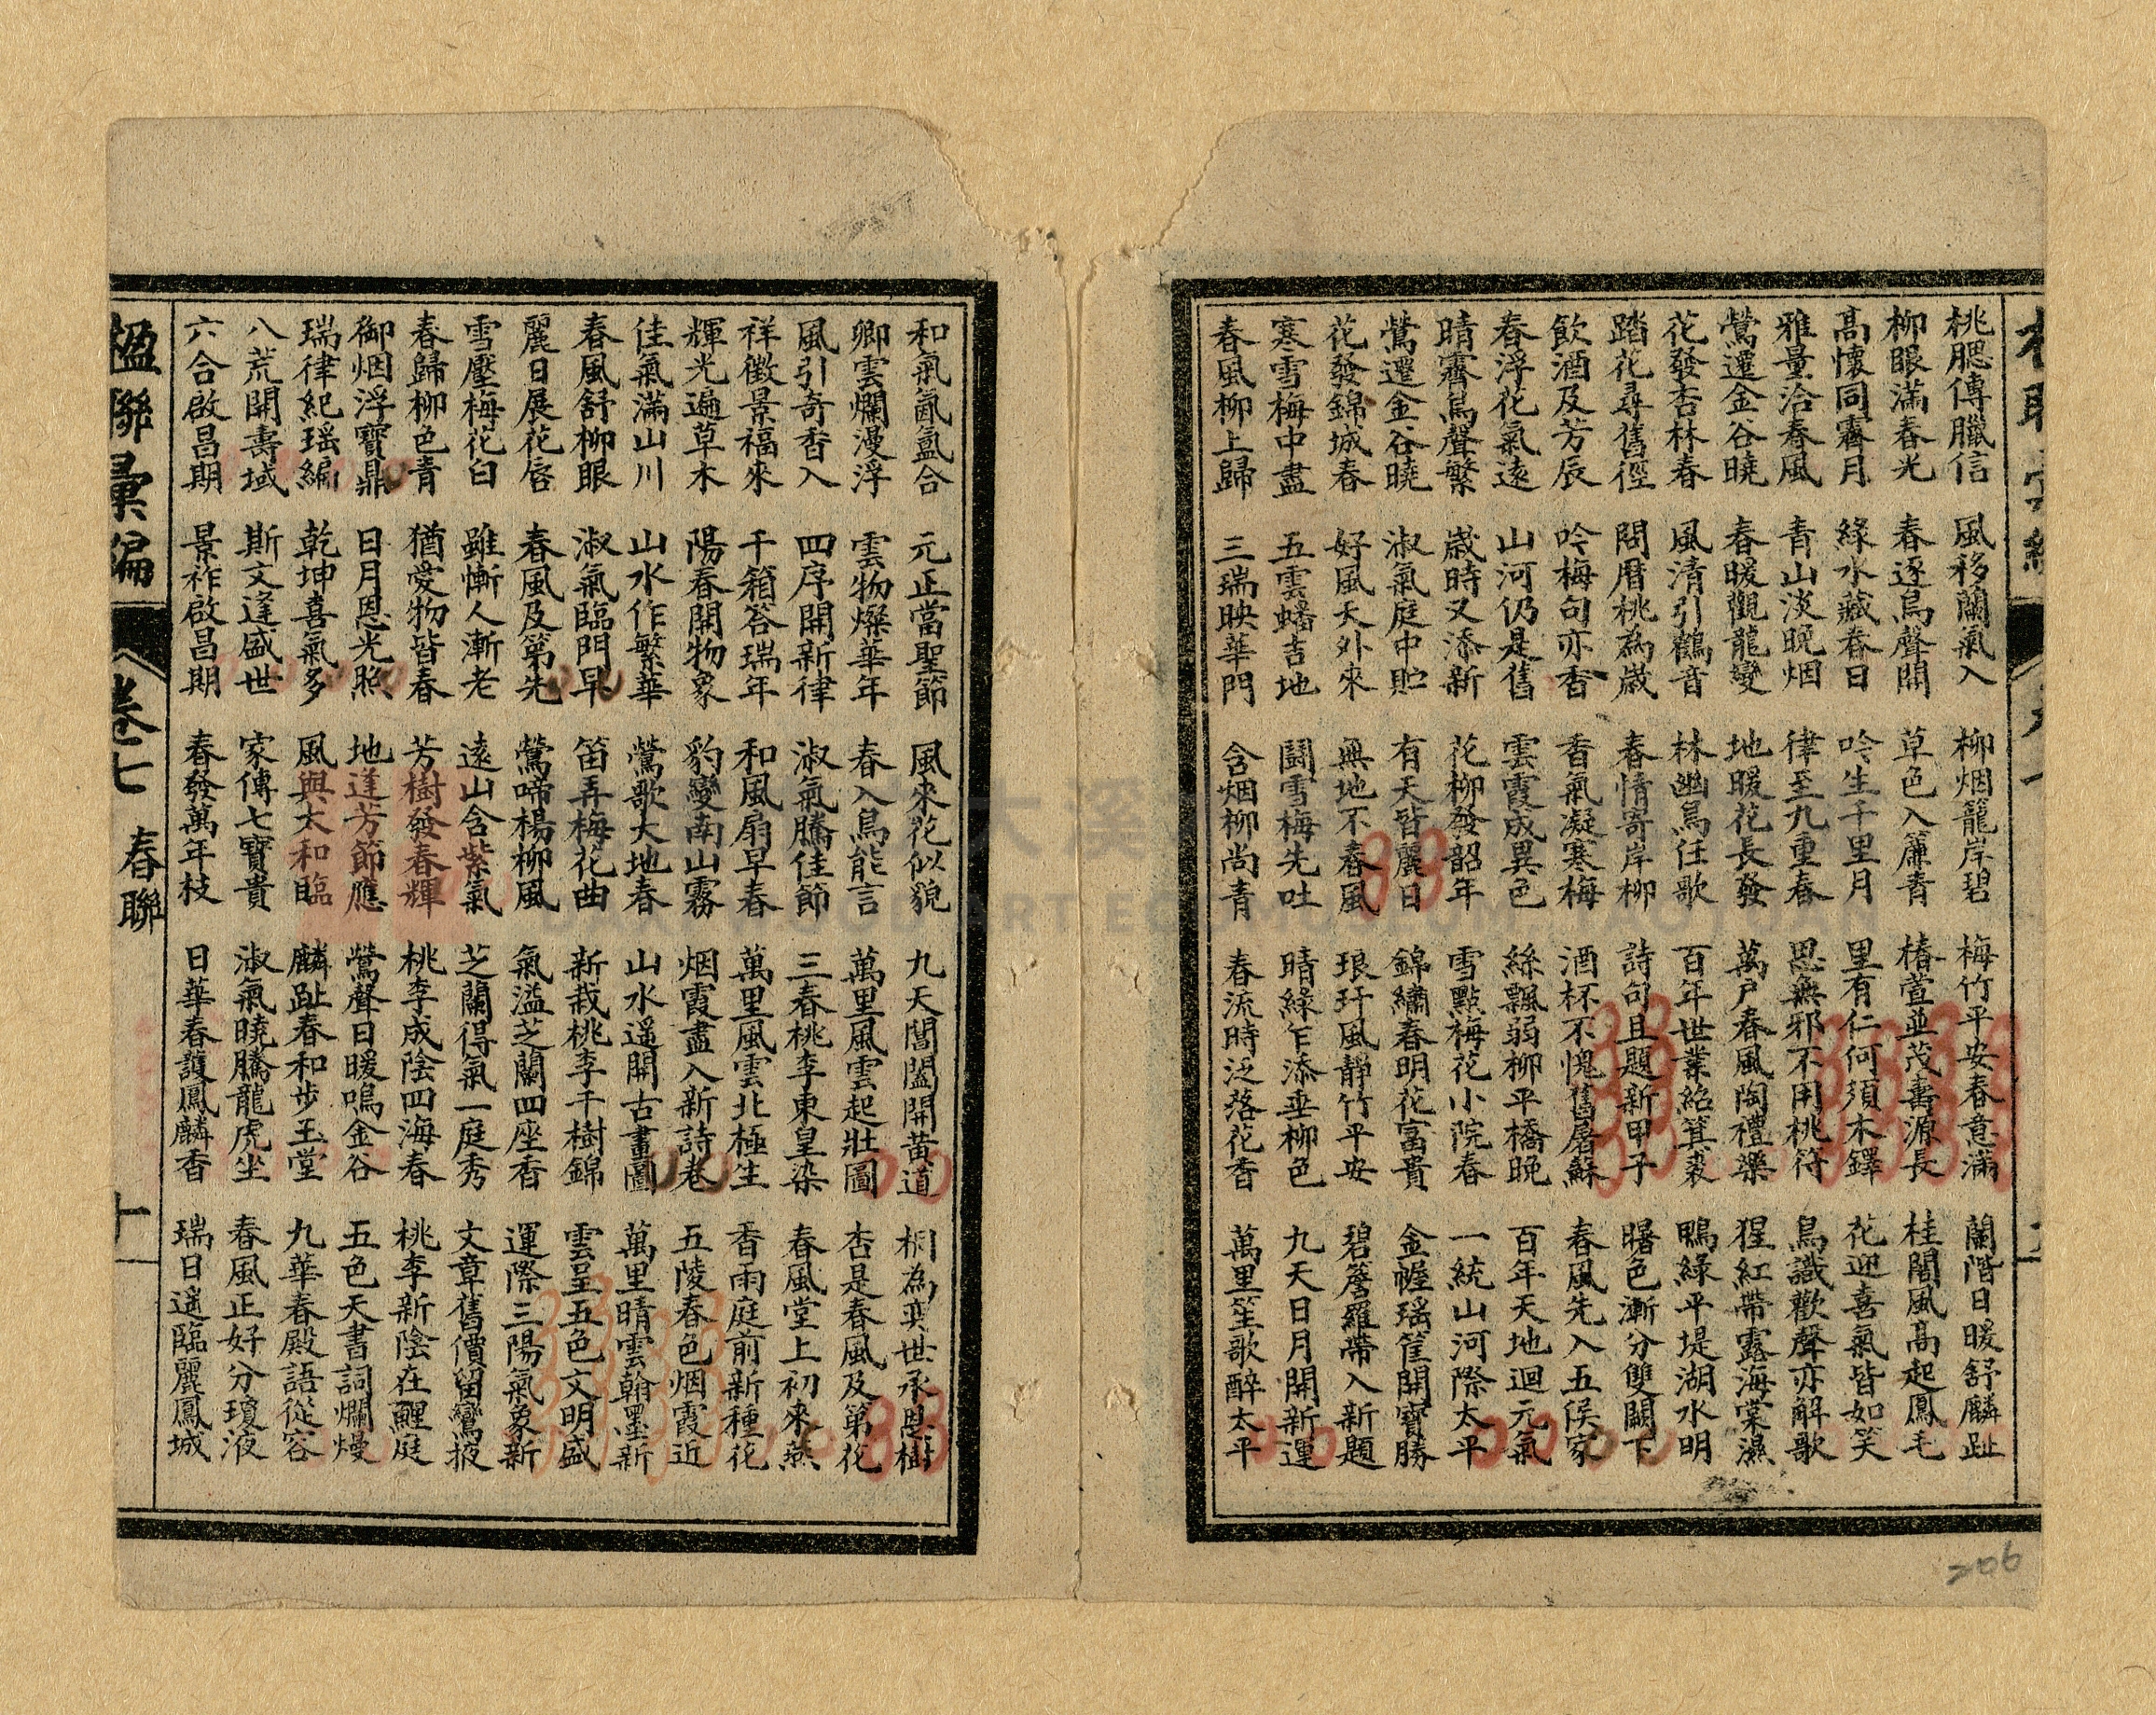 桃腮傳臘信 風移蘭氣入 柳烟籠岸碧 梅竹平安春意滿 蘭階日暖舒麟趾
柳眼滿春光 春逐鳥聲開 草色入簾青 椿萱並茂壽源長 桂閣風高起鳳毛
高懷同霽月 綠水藏春日 吟生千里月 里有仁何須木鐸 花迎喜氣皆如笑
雅量洽春風 青山淡晚烟 律至九重春 思無邪不用桃符 鳥識歡聲亦解歌
鶯遷金谷曉 春暖觀龍變 地暖花長發 萬戶春風陶禮樂 猩紅帶露海棠濕
花發杏林春 風清引鶴音 林幽鳥任歌 百年世業紹箕裘 鴨綠平堤湖水明
踏花尋舊徑 問曆桃為歲 春情寄岸柳 詩句且題新甲子 曙色漸分雙闕下
飲酒及芳辰 吟梅句亦香 香氣凝寒梅 酒杯不愧舊屠蘇 春風先入五侯家
春浮花氣遠 山河仍是舊 雲霞成異色 絲飄弱柳平橋晚 百年天地迴元氣
晴霽鳥聲繁 歲時又添新 花柳發韶年 雪點梅花小院春 一統山河際太平
鶯遷金谷曉 淑氣庭中貯 有天皆麗日 錦繡春明花富貴 金幄瑶筐開寶勝
花發錦城春 好風天外來 無地不春風 琅玕風靜竹平安 碧簷羅帶入新題
寒雪梅中盡 五雲蟠吉地 鬪雪梅先吐 晴綠乍添垂柳色 九天日月開新運
春風柳上歸 三瑞映華門 含烟柳尚青 春流時泛落花香 萬里笙歌醉太平
和氣氤氳合 元正當聖節 風來花似貌 九天閶闔開黃道 桐為奕世承恩樹
卿雲爛漫浮 雲物燦華年 春入鳥能言 萬里風雲起壯圖 杏是春風及第花
風引奇香入 四序開新律 淑氣騰佳節 三春桃李東皇染 春風堂上初來燕
祥徵景福來 千箱答瑞年 和風扇早春 萬里風雲北極生 香雨庭前新種花
輝光遍草木 陽春開物象 豹變南山霧 烟霞盡入新詩卷 五陵春色烟霞近
佳氣滿山川 山水作繁華 鶯歌大地春 山水遥開古畫圖 萬里晴雲翰墨新
春風舒柳眼 淑氣臨門早 笛弄梅花曲 新栽桃李千樹錦 雲呈五色文明盛
麗日展花唇 春風及第先 鶯啼楊柳風 氣溢芝蘭四座香 運際三陽氣象新
雪壓梅花白 雖慚人漸老 遠山含紫氣 芝蘭得氣一庭秀 文章舊價留鸞掖
春歸柳色青 猶愛物皆春 芳樹發春輝 桃李成陰四海春 桃李新陰在鯉庭
御烟浮寶鼎 日月恩光照 地逢芳節應 鶯聲日暖鳴金谷 五色天書詞爛熳
瑞律紀瑶編 乾坤喜氣多 風與太和臨 麟趾春和步玉堂 九華春殿語從容
八荒開壽域 斯文逢盛世 家傳七寶貴 淑氣曉騰龍虎坐 春風正好分瓊液
六合啟昌期 景祚啟昌期 春發萬年枝 日華春護鳳麟香 瑞日遥臨麗鳳城
楹聯彙編 卷七 春聯 十
206